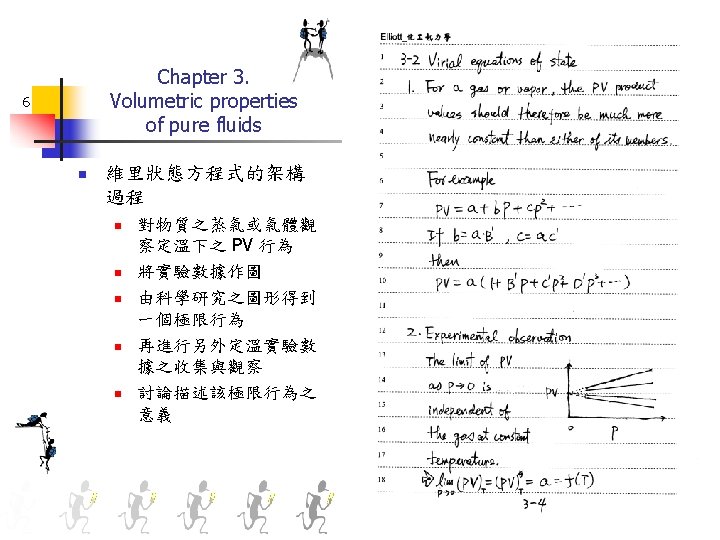 6
Chapter 3.
Volumetric properties
of pure fluids
維里狀態方程式的架構
過程
對物質之蒸氣或氣體觀
察定溫下之 PV 行為
將實驗數據作圖
由科學研究之圖形得到
一個極限行為
再進行另外定溫實驗數
據之收集與觀察
討論描述該極限行為之
意義
Elliott_化工熱力學
1 3-2 Virial equations of state
2 1. For a gas or vapor, the PV product
3 values should therefore be much more
4 nearly constant than either of its members
5
6 For example
7 PV = a + bP + cP² + ⋯
8 If b = a B', c = a c'
9 then
10 PV = a (1 + B'P + C'P² + D'P³ + ⋯
11
12 2. Experimental observation
13 The limit of PV
14 as P→0 is
15 independent of
16 the gas at constant
17 temperature.
PV
0 P
18 lim (PV)_T = (PV)_T^* = a = f(T)
P→0
3-4